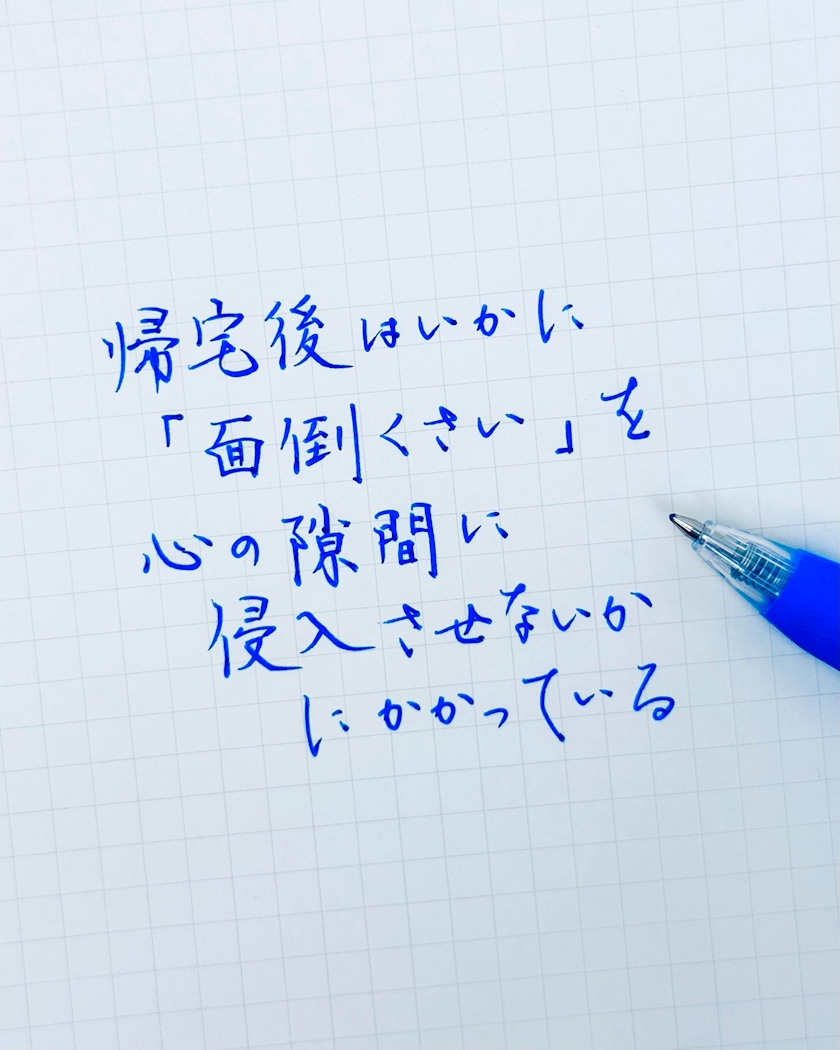 帰宅後はいかに
「面倒くさい」を
心の隙間に
侵入させないか
にかかっている